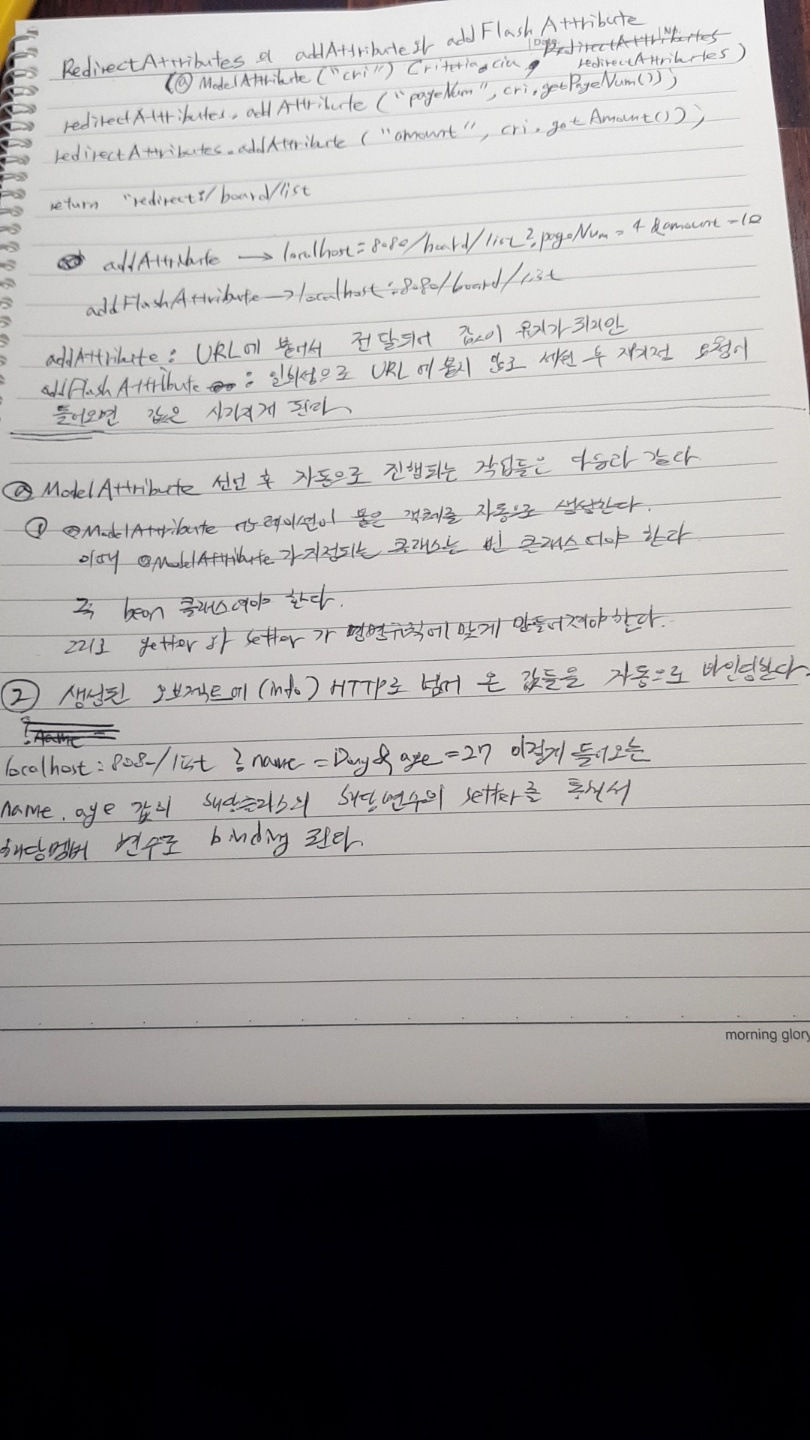 RedirectAttributes 의 addAttribute와 addFlash Attribute
(@ModelAttribute ("cri") Criteria cri, RedirectAttributes redirectAttributes)
redirectAttributes.addAttribute ("pageNum", cri.getPageNum());
redirectAttributes.addAttribute ("amount", cri.getAmount());
return "redirect:/board/list
addAttribute → localhost:8080/board/list?pageNum=4&amount=10
addFlashAttribute → localhost:8080/board/list
addAttribute : URL에 붙어서 전달되어 값이 유지가 되지만
addFlashAttribute : 일회성으로 URL에 붙지 않고 세션 후 재지정 요청이
들어오면 값은 사라지게 된다.
@ModelAttribute 선언 후 자동으로 진행되는 작업들은 다음과 같다
① @ModelAttribute 어노테이션이 붙은 객체를 자동으로 생성한다.
이때 @ModelAttribute가 지정되는 클래스는 빈 클래스여야 한다
즉 bean 클래스여야 한다.
그리고 getter 와 setter 가 명명규칙에 맞게 만들어져야한다.
② 생성된 오브젝트에 (info) HTTP로 넘어 온 값들을 자동으로 바인딩한다.
localhost:808-/list ? name = Day & age = 27 이렇게 들어오는
name, age 값의 해당클래스의 해당변수의 setter를 통해서
해당멤버 변수로 binding 된다.
morning glory